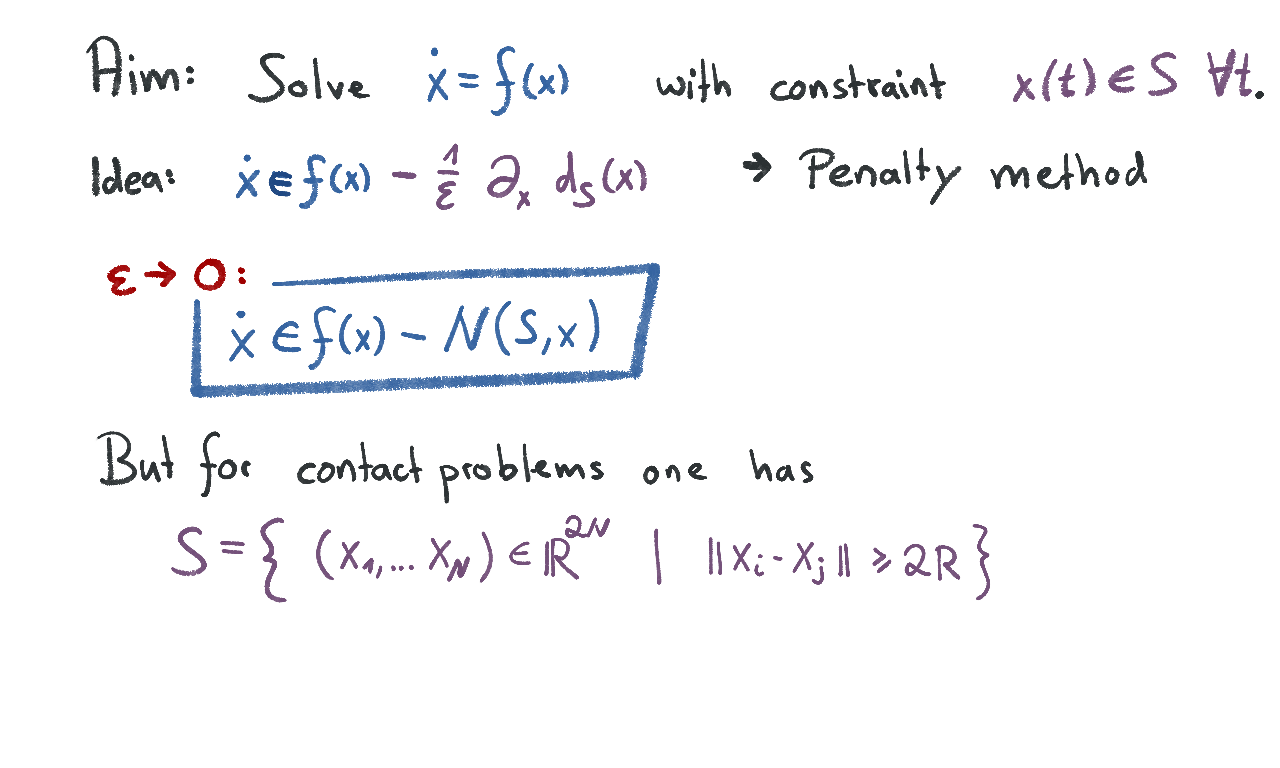 Aim: Solve ẋ = f(x) with constraint x(t) ∈ S ∀t.
Idea: ẋ ∈ f(x) - 1/ε ∂ₓ d_S(x) → Penalty method
ε → 0:
ẋ ∈ f(x) - N(S,x)
But for contact problems one has
S = { (x₁,... x_N) ∈ ℝ^2N | ||x_i - x_j|| ⩾ 2R }